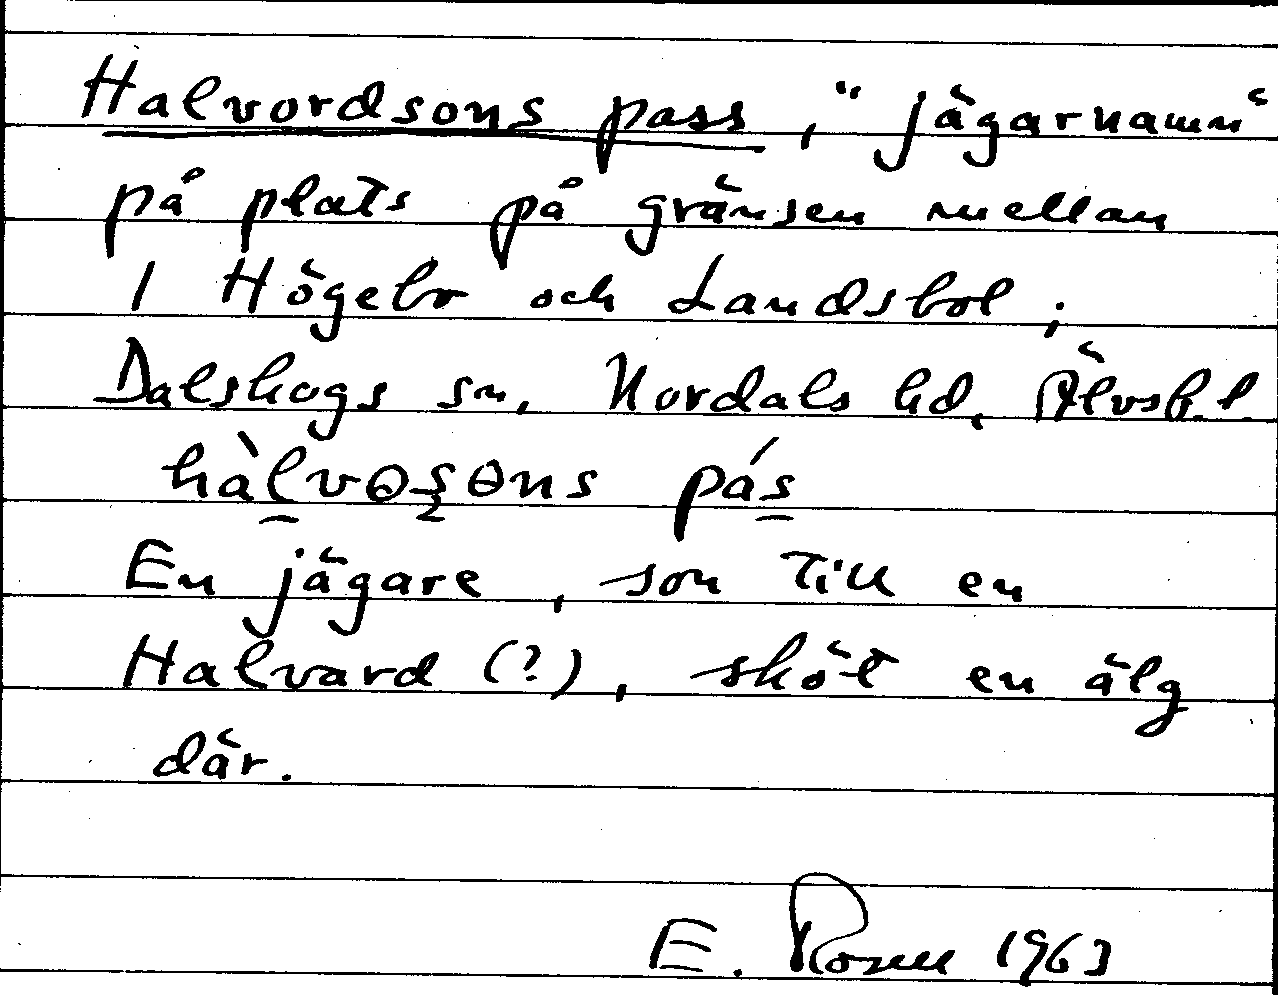 Halvordsons pass, "jägarnamn"
på plats på gränsen mellan
1 Högebo och Landsbol;
Dalskogs sn, Nordals hd, Älvsb. l.
hàlvɵşɵns pás
En jägare, son till en
Halvard (?), sköt en älg
där.
E. 1963